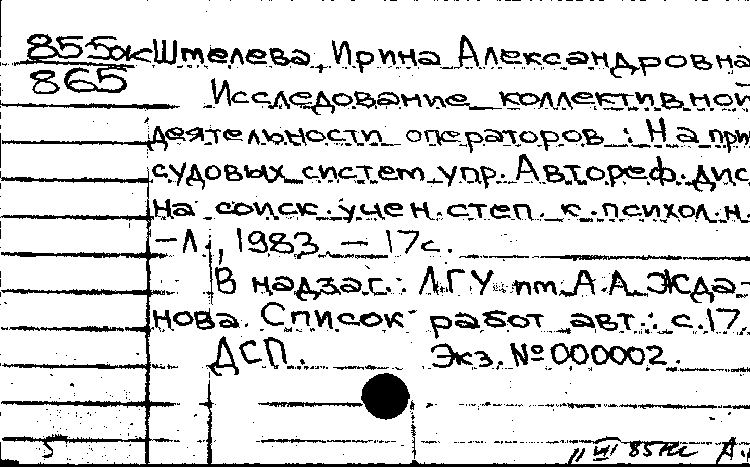 855ак Штелева, Ирина Александровна
865
Исследование коллективной
деятельности операторов : На при
судовых систем упр. Автореф. дис
на соиск. учен. степ. к. психол. н.
– Л., 1983 – 17с.
В надзаг.: ЛГУ им. А.А. Жда-
нова. Список работ авт.: с.17.
ДСП. Экз. №000002.
5 11 VII 85